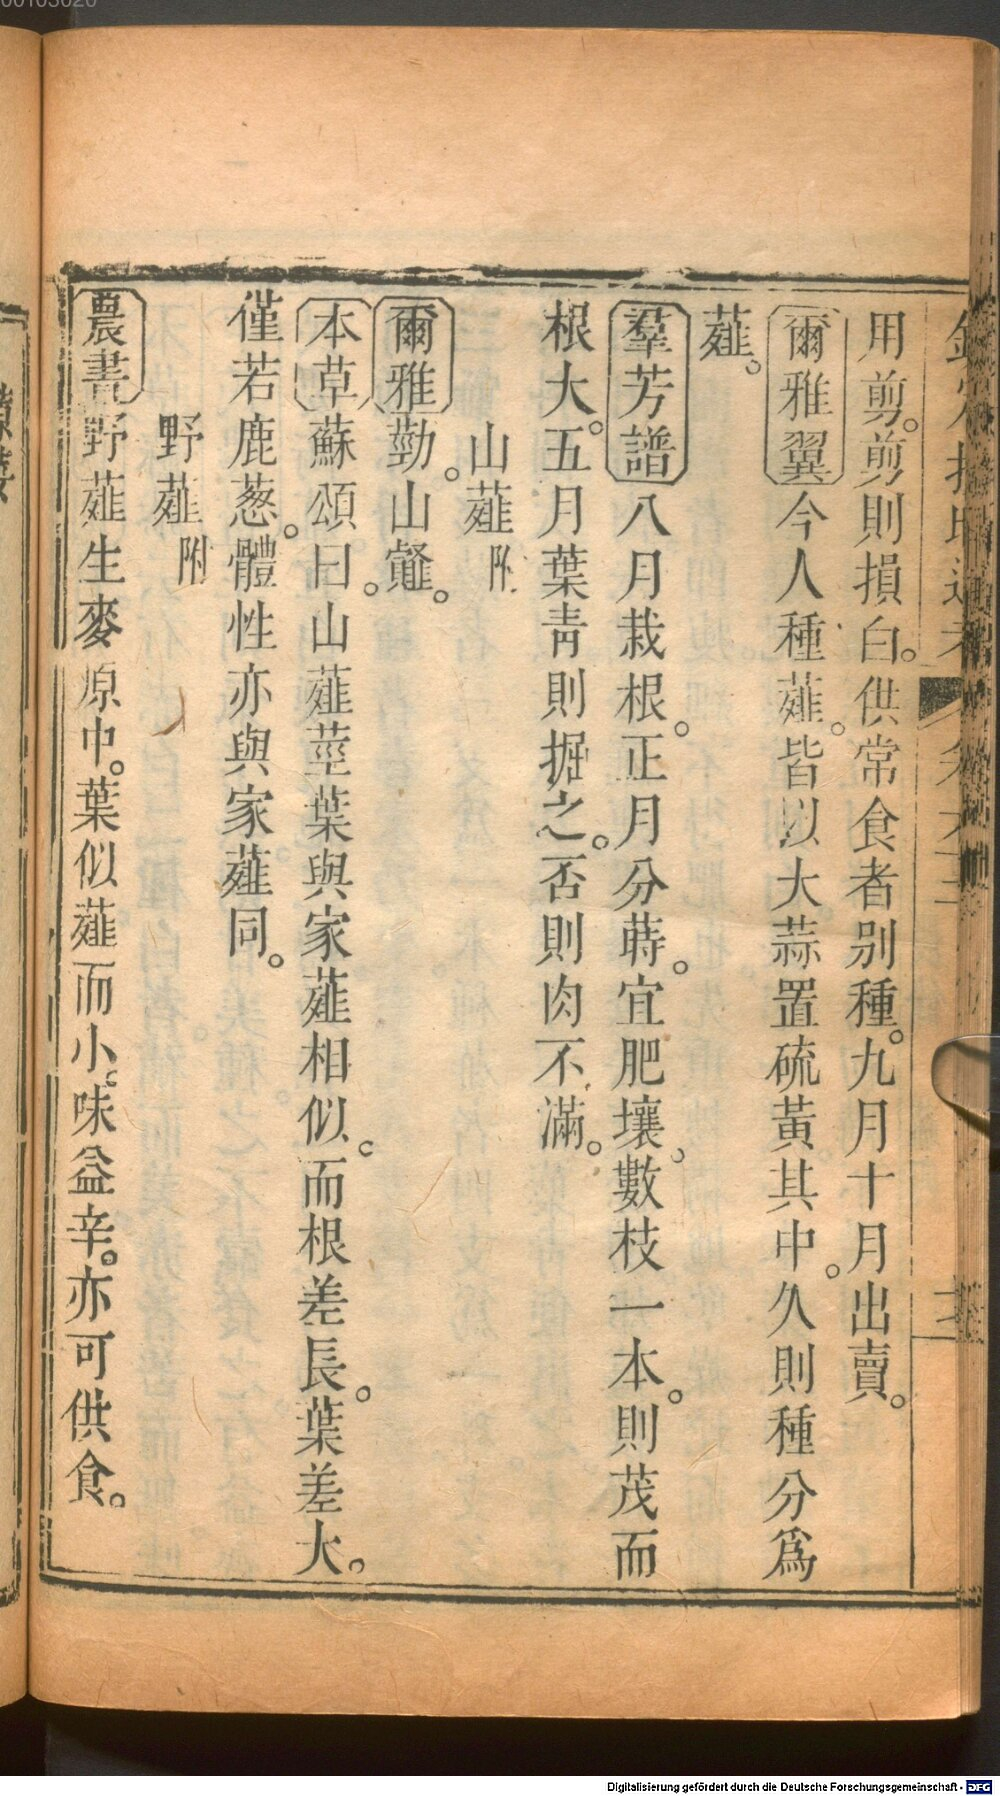 用剪。剪則損白。供常食者別種。九月十月出賣。
爾雅翼今人種薤。皆以大蒜置硫黃其中。久則種分爲
薤。
羣芳譜八月栽根。正月分蒔。宜肥壤。數枝一本。則茂而
根大。五月葉靑則掘之。否則肉不滿。
山薤附
爾雅葝。山䪥。
本草蘇頌曰。山薤莖葉與家薤相似。而根差長。葉差大。
僅若鹿葱。體性亦與家薤同。
野薤附
農書野薤生麥原中。葉似薤而小。味益辛。亦可供食。
Digitalisierung gefördert durch die Deutsche Forschungsgemeinschaft - DFG